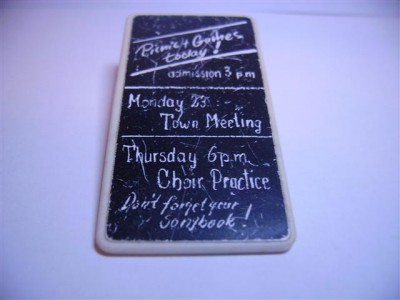 Picnic & Games
today!
admission 3 p.m
Monday 23 :-
Town Meeting
Thursday 6p.m.
Choir Practice
Don't forget your
Songbook!